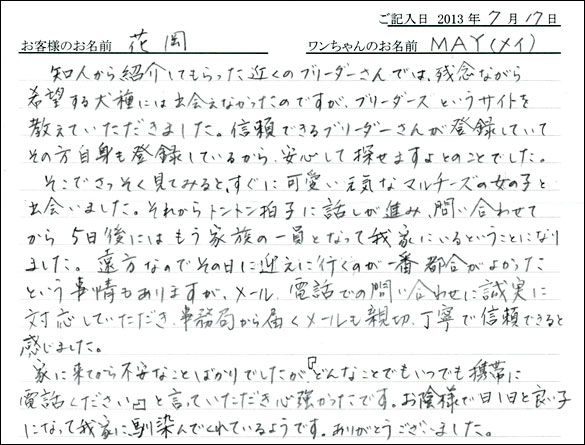 ご記入日 2013年7月17日
お客様のお名前 花岡 ワンちゃんのお名前 MAY(メイ)
知人から紹介してもらった近くのブリーダーさんでは、残念ながら
希望する犬種には出会えなかったのですが、ブリーダースというサイトを
教えていただきました。信頼できるブリーダーさんが登録していて
その方自身も登録しているから、安心して探せますよとのことでした。
そこでさっそく見てみると、すぐに可愛い元気なマルチーズの女の子と
出会いました。それからトントン拍子に話しが進み、問い合わせて
から5日後にはもう家族の一員となって我家にいるということになり
ました。遠方なのでその日に迎えに行くのが一番都合がよかった
という事情もありますが、メール、電話での問い合わせに誠実に
対応していただき、事務局から届くメールも親切、丁寧で信頼できると
感じました。
家に来てから不安なことばかりでしたが、『どんなことでもいつでも携帯に
電話ください』と言っていただき心強かったです。お陰様で日1日と良い子
になって我家に馴染んでくれているようです。ありがとうございました。